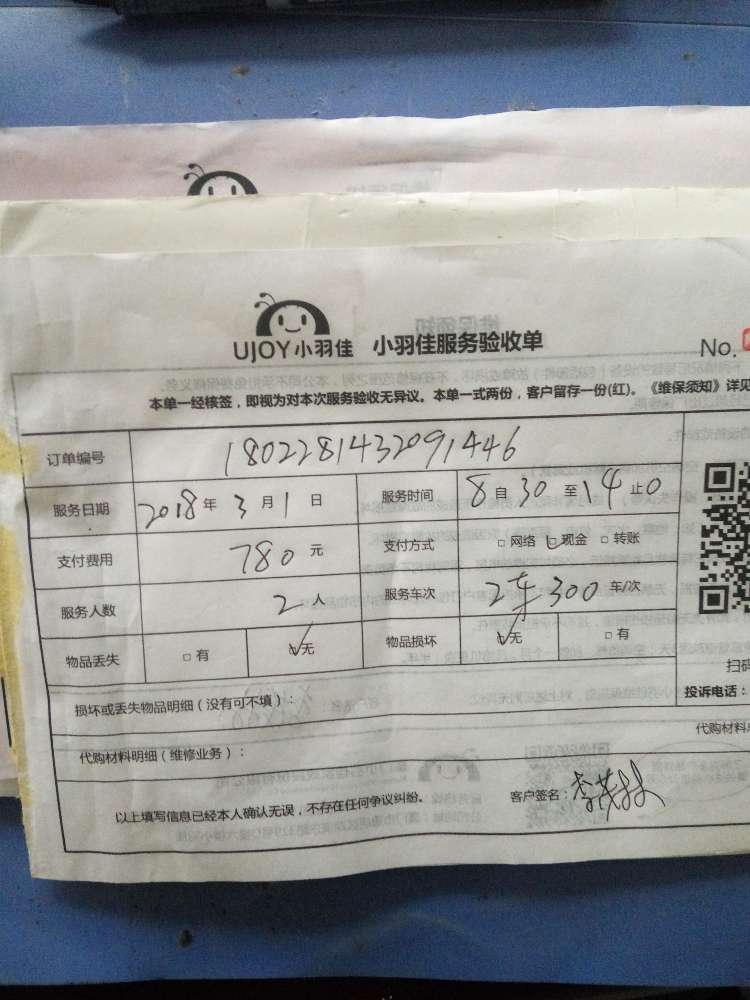 UJOY小羽佳 小羽佳服务验收单 No.
本单一经核签，即视为对本次服务验收无异议。本单一式两份，客户留存一份(红)。《维保须知》详见
订单编号 1802281432091446
服务日期 2018年3月1日 服务时间 8自30至14止0
支付费用 780元 支付方式 □网络 ☑现金 □转账
服务人数 2人 服务车次 2车300车/次
物品丢失 □有 ☑无 物品损坏 ☑无 □有
扫码
损坏或丢失物品明细（没有可不填）： 投诉电话：
代购材料明细（维修业务）： 代购材料
以上填写信息已经本人确认无误，不存在任何争议纠纷。 客户签名：